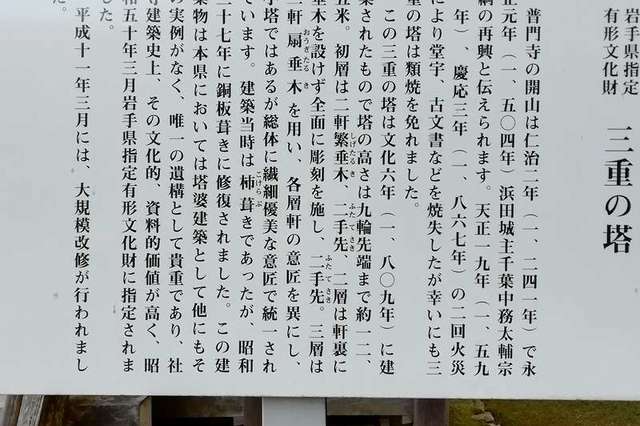 岩手県指定
有形文化財
三重の塔
普門寺の開山は仁治二年（一、二四一年）で永
正元年（一、五〇四年）浜田城主千葉中務太輔宗
綱の再興と伝えられます。天正一九年（一、五九
年）、慶応三年（一、八六七年）の二回火災
により堂宇、古文書などを焼失したが幸いにも三
重の塔は類焼を免れました。
この三重の塔は文化六年（一、八〇九年）に建
築されたもので塔の高さは九輪先端まで約一二、
五米。初層は二軒繁垂木、二手先、二層は軒裏に
しげたるき
ふたてさき
垂木を設けず全面に彫刻を施し、二手先。三層は
ふたてさき
二軒扇垂木を用い、各層軒の意匠を異にし、
おうぎたるき
小塔ではあるが総体に繊細優美な意匠で統一され
ています。建築当時は杮葺きであったが、昭和
こけらぶ
二十七年に銅板葺きに修復されました。この建
築物は本県においては塔婆建築として他にもそ
の実例がなく、唯一の遺構として貴重であり、社
寺建築史上、その文化的、資料的価値が高く、昭
和五十年三月岩手県指定有形文化財に指定されま
した。
平成十一年三月には、大規模改修が行われまし
た。